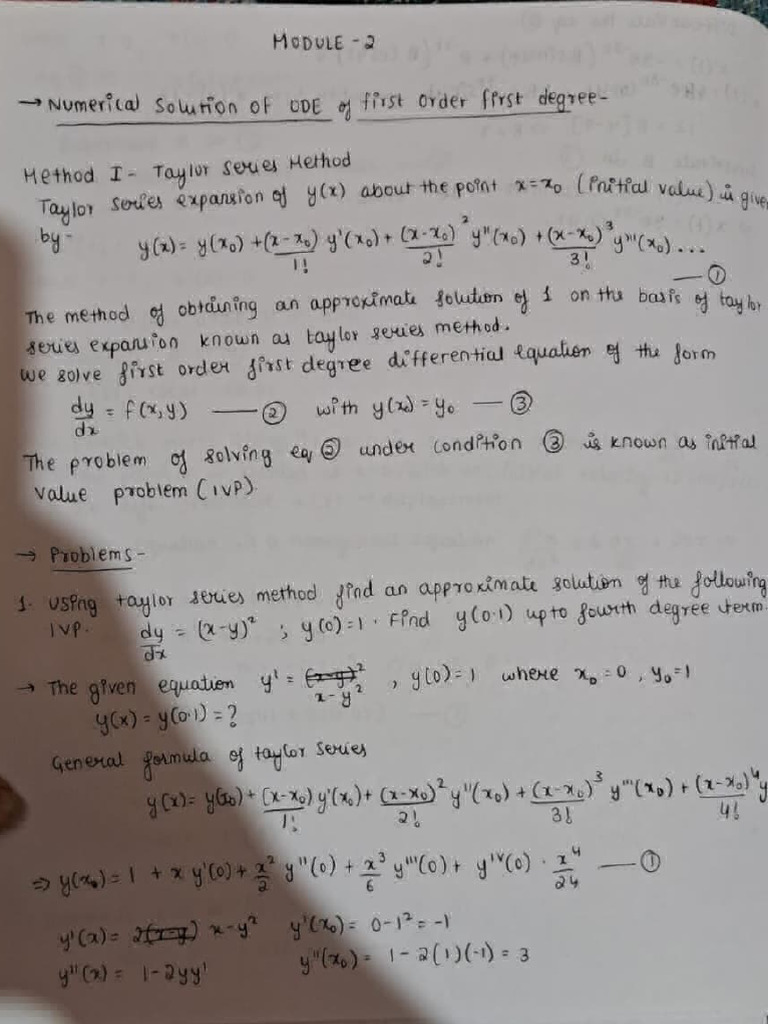 MODULE - 2
→ Numerical Solution of ODE of first order first degree-
Method I - Taylor series Method
Taylor series expansion of y(x) about the point x = x₀ (initial value) is give
by - y(x) = y(x₀) + (x-x₀)/1! y'(x₀) + (x-x₀)²/2! y''(x₀) + (x-x₀)³/3! y'''(x₀) ...
— ①
The method of obtaining an approximate solution of 1 on the basis of taylor
series expansion known as taylor series method.
we solve first order first degree differential equation of the form
dy/dx = f(x,y) — ② with y(x₀) = y₀ — ③
The problem of solving eq ② under condition ③ is known as initial
value problem (IVP)
→ Problems -
1. using taylor series method find an approximate solution of the following
IVP. dy/dx = (x-y)² ; y(0)=1 . Find y(0.1) upto fourth degree term.
→ The given equation y' = (x-y)² x-y² , y(0)=1 where x₀=0, y₀=1
y(x) = y(0.1) = ?
General formula of taylor series
y(x) = y(x₀) + (x-x₀)/1! y'(x₀) + (x-x₀)²/2! y''(x₀) + (x-x₀)³/3! y'''(x₀) + (x-x₀)⁴/4! y
⇒ y(x₀) = 1 + x y'(0) + x²/2 y''(0) + x³/6 y'''(0) + y'ᵛ(0) · x⁴/24 — ①
y'(x) = 2(x-y) x-y² y'(x₀) = 0-1² = -1
y''(x) = 1-2yy' y''(x₀) = 1-2(1)(-1) = 3